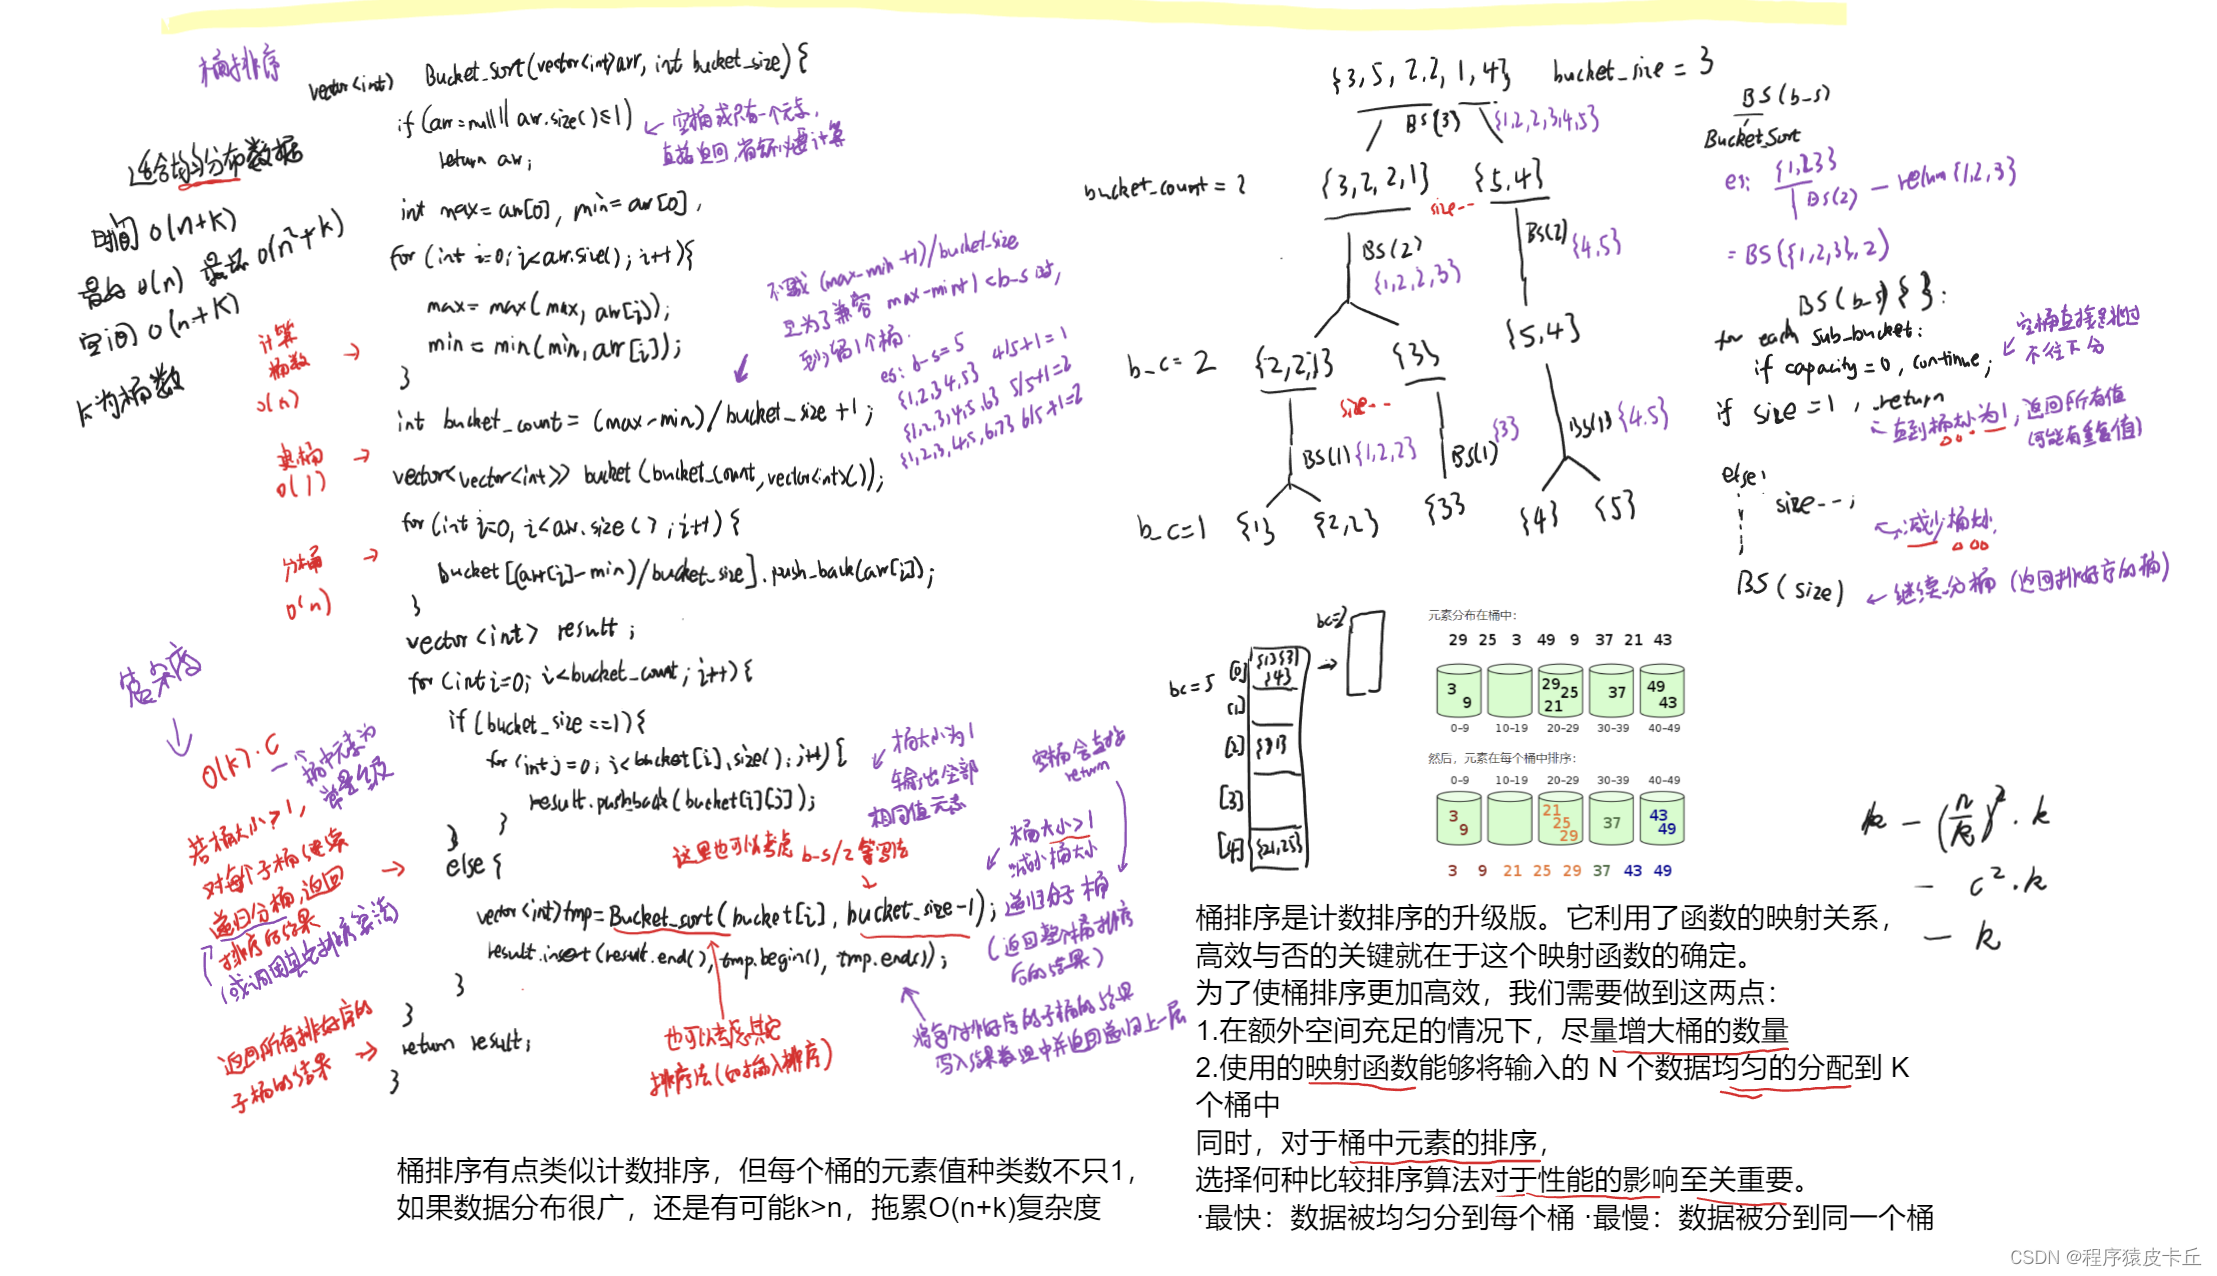 桶排序
vector<int> Bucket_sort(vector<int>arr, int bucket_size){
if(arr=null|| arr.size()≤1)
return arr;
← 空桶或只有一个元素,
直接返回,
适合均匀分布数据
时间 O(n+k)
最好 O(n) 最坏 O(n²+k)
空间 O(n+k)
k为桶数
int max=arr[0], min=arr[0],
for (int i=0; i<arr.size(); i++){
max= max(max, arr[i]);
min= min(min, arr[i]);
}
计算
桶数 →
O(n)
不写成 (max-min+1)/bucket_size
是为了兼容 max-min+1<b-s 时,
到少留1个桶.
es: b-s=5
{1,2,3,4,5} 4/5+1=1
{1,2,3,4,5,6} 5/5+1=2
{1,2,3,4,5,6,7} 6/5+1=2
int bucket_count = (max-min)/bucket_size +1;
建桶 →
O(1)
vector<vector<int>> bucket(bucket_count,vector<int>());
for (int i=0, i<arr.size(); i++){
分桶 →
O(n)
bucket[(arr[i]-min)/bucket_size].push_back(arr[i]);
}
vector<int> result;
for (int i=0; i<bucket_count; i++){
if (bucket_size==1){
for (int j=0; j<bucket[i].size(); j++){
result.pushback(bucket[i][j]);
}
}
桶大小为1
输出全部
相同值元素
空桶会直接
return
O(k)·C
桶中元素为
常量级
若桶大小>1,
对每个子桶继续
递归分桶,返回
排序的结果 →
(或调用其它排序算法)
else {
这里也可以考虑 b-s/2 等写法
vector<int>tmp=Bucket_sort(bucket[i], bucket_size-1);
result.insert(result.end(), tmp.begin(), tmp.end());
}
}
桶大小>1
减小桶大小
递归分子桶
(返回整个桶排序
后的结果)
也可以考虑其它
排序法(如插入排序)
将每个排好序的子桶的结果
写入结果数组中并返回递归上一层
返回所有排好序的
子桶的结果 →
return result;
}
桶排序有点类似计数排序，但每个桶的元素值种类数不只1，
如果数据分布很广，还是有可能k>n，拖累O(n+k)复杂度
{3,5,2,2,1,4} bucket_size = 3
BS(3) {1,2,2,3,4,5}
bucket_count = 2
{3,2,2,1} {5,4}
size--
BS(2) {1,2,2,3}
BS(2) {4,5}
b_c = 2 {2,2,1} {3} {5,4}
size--
BS(1) {1,2,2} BS(1) {3} BS(1) {4,5}
b_c=1 {1} {2,2} {3} {4} {5}
BS(b-s)
Bucket_Sort
es: {1,2,3}
BS(2) — return {1,2,3}
= BS({1,2,3}, 2)
BS(b-s){ }:
for each sub_bucket:
if capacity=0, continue;
空桶直接跳过
不往下分
if size=1, return
← 直到桶大小为1,返回所有值
(可能有重复值)
else:
size--;
←减少桶大小
BS(size) ← 继续分桶 (返回排好序的桶)
bc=5
[0] {1}{3} {4} → bc=2
[1]
[2]
[3]
[4] {21,25}
元素分布在桶中：
29 25 3 49 9 37 21 43
3 9
29 25 21
37
49 43
0–9 10–19 20–29 30–39 40–49
然后，元素在每个桶中排序：
0–9 10–19 20–29 30–39 40–49
3 9
21 25 29
37
43 49
3 9 21 25 29 37 43 49
k — (n/k)²·k
— c²·k
— k
桶排序是计数排序的升级版。它利用了函数的映射关系，
高效与否的关键就在于这个映射函数的确定。
为了使桶排序更加高效，我们需要做到这两点：
1.在额外空间充足的情况下，尽量增大桶的数量
2.使用的映射函数能够将输入的 N 个数据均匀的分配到 K
个桶中
同时，对于桶中元素的排序，
选择何种比较排序算法对于性能的影响至关重要。
·最快：数据被均匀分到每个桶 ·最慢：数据被分到同一个桶
CSDN @程序猿皮卡丘